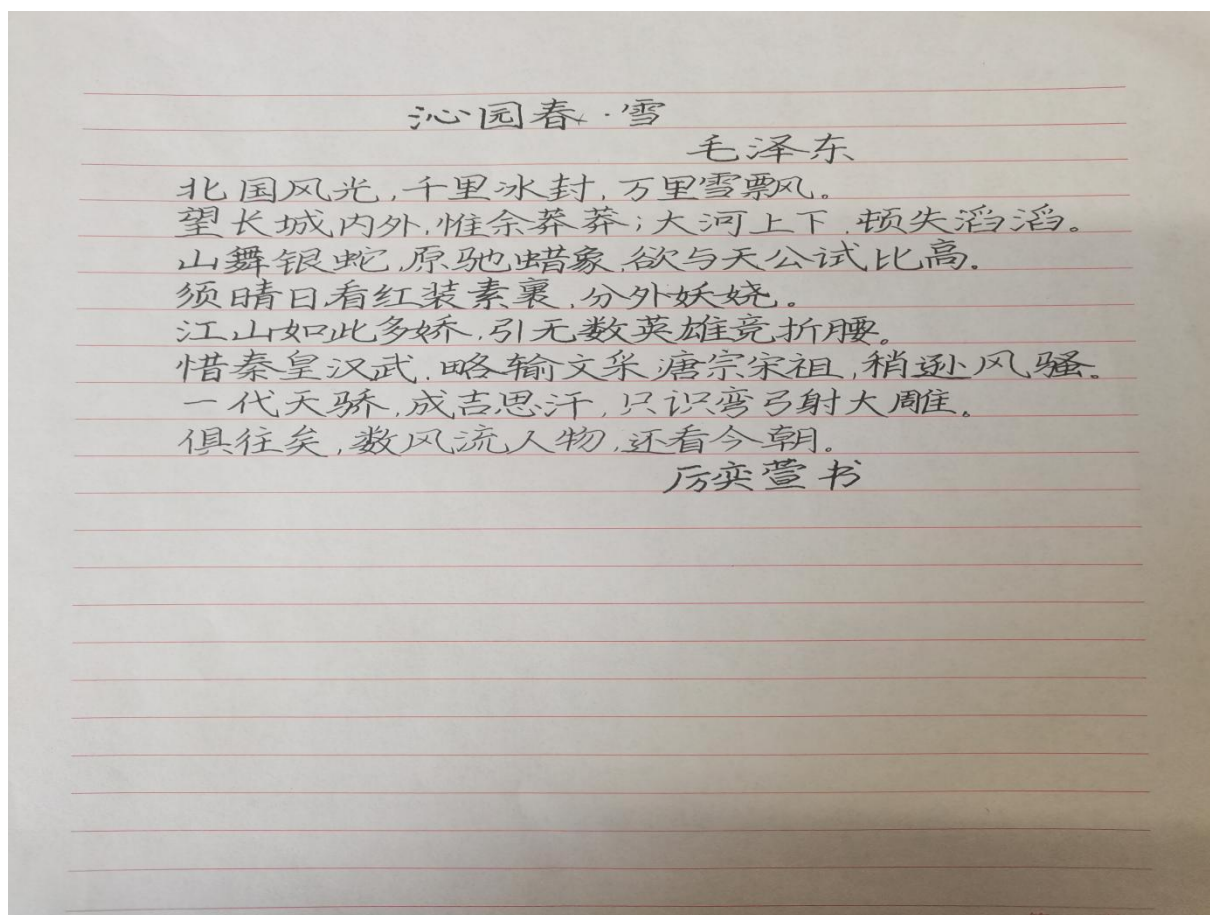 沁园春·雪
毛泽东
北国风光,千里冰封,万里雪飘。
望长城内外,惟余莽莽;大河上下,顿失滔滔。
山舞银蛇,原驰蜡象,欲与天公试比高。
须晴日看红装素裹,分外妖娆。
江山如此多娇,引无数英雄竞折腰。
惜秦皇汉武,略输文采,唐宗宋祖,稍逊风骚。
一代天骄,成吉思汗,只识弯弓射大雕。
俱往矣,数风流人物,还看今朝。
厉奕萱书